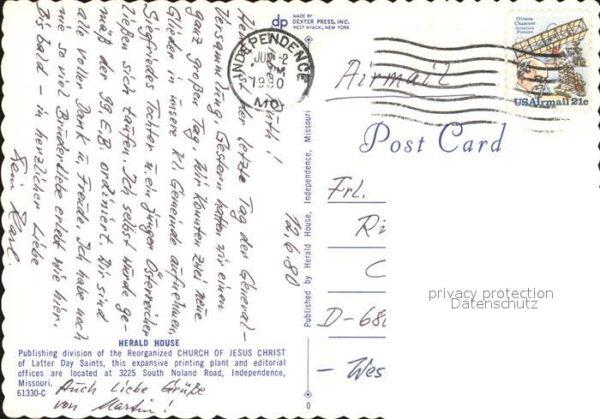 MADE BY
dp DEXTER PRESS, INC.
WEST NYACK, NEW YORK
INDEPENDENCE
2
PM
1980
MO
Octave
Chanute
Aviation
Pioneer
USAirmail 21c
Airmail
Post Card
Heute ist der letzte Tag der General-
Versammlung. Gestern hatten wir einen
ganz großen Tag. Wir konnten zwei neue
Glieder in unsere Kl. Gemeinde aufnehmen,
Siegfriedes Tochter u. ein junger Österreicher
ließen sich taufen. Ich selbst wurde ge-
mäß der 99 E.B. ordiniert. Wir sind
alle voller Dank u. Freude. Ich habe noch
nie so viel Bruderliebe erlebt wie hier.
Bis bald - in herzlicher Liebe
Dein
12.6.80
Published by Herald House, Independence, Missouri
Frl.
Ri
C
D-680
- Wes
privacy protection
Datenschutz
HERALD HOUSE
Publishing division of the Reorganized CHURCH OF JESUS CHRIST
of Latter Day Saints, this expansive printing plant and editorial
offices are located at 3225 South Noland Road, Independence,
Missouri.
61330-C
Auch liebe Grüße
von Martin!
0